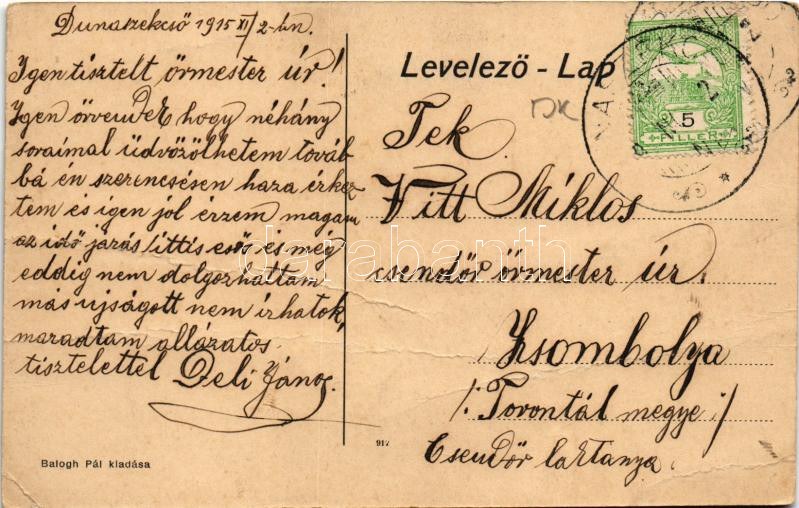 Dunaszekcső 1915 XI/2-án.
Igen tisztelt örmester úr!
Igen örvendek hogy néhány
soraimal üdvözölhetem továb
bá én szerencsésen haza érkez
tem és igen jol érzem magam
az idő jarás ittis eső és még
eddig nem dolgozhattam
más ujságott nem irhatok,
maradtam allázatos
tisztelettel Deli János.
Balogh Pál kiadása
917
Levelező - Lap
5
FILLER
Tek.
Vitt Miklos
csendőr örmester úr.
Zsombolya
/: Torontál megye :/
Csendőr laktanya.
darabanth.com